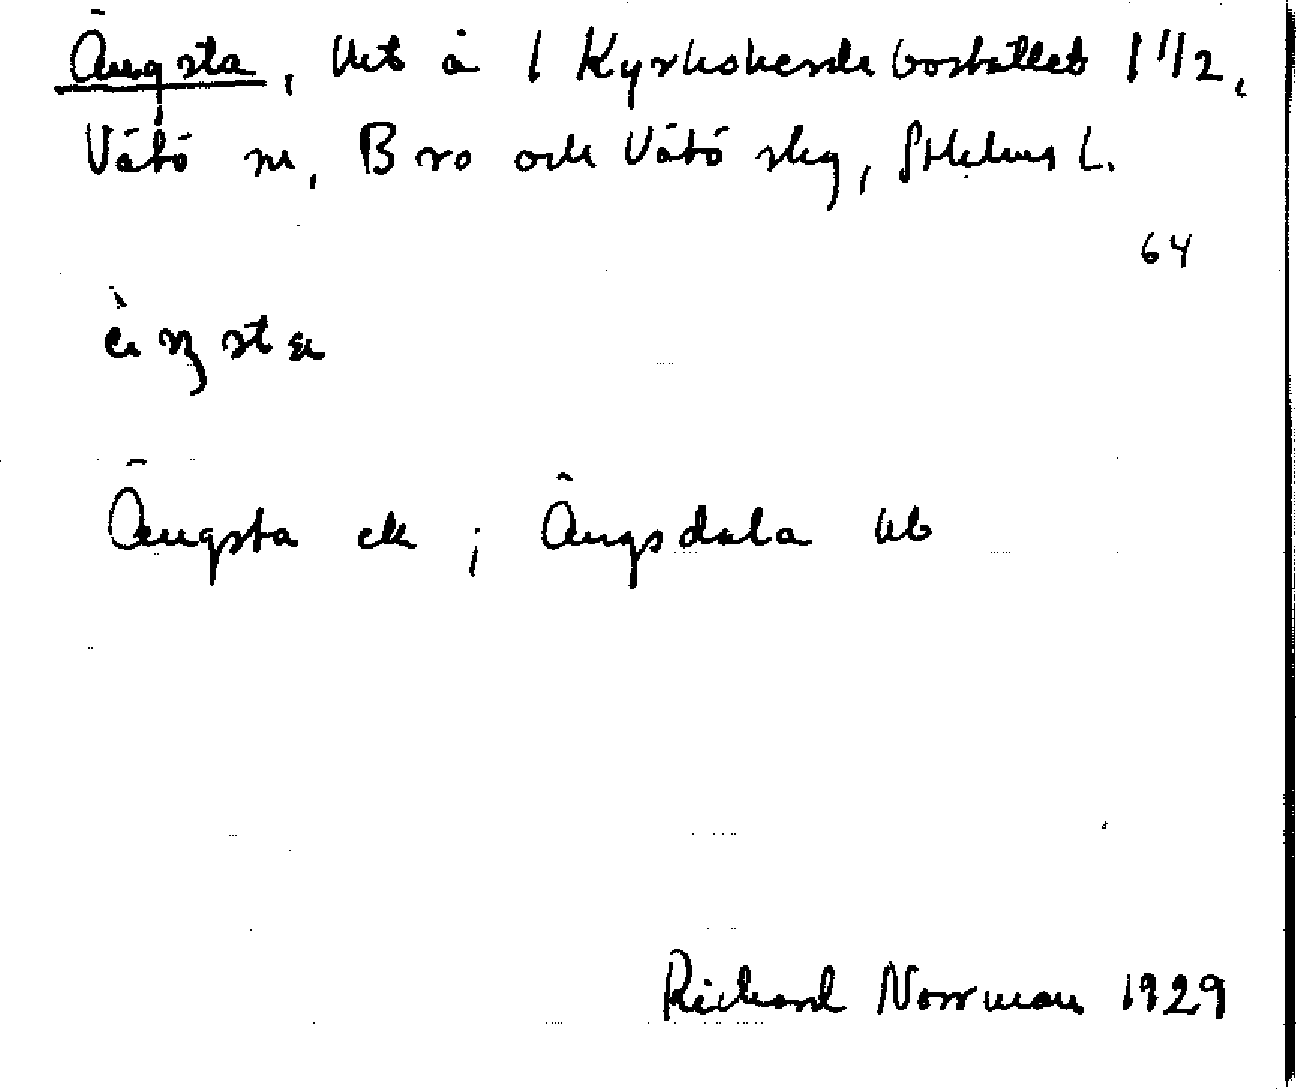 Ängsta, lht å 1 Kyrkoherdebostället 1 1/2,
Vätö sn, Bro och Vätö skg, Sthlms L.
64
Ängsta ek ; Ängsdala
Richard Norrman 1929